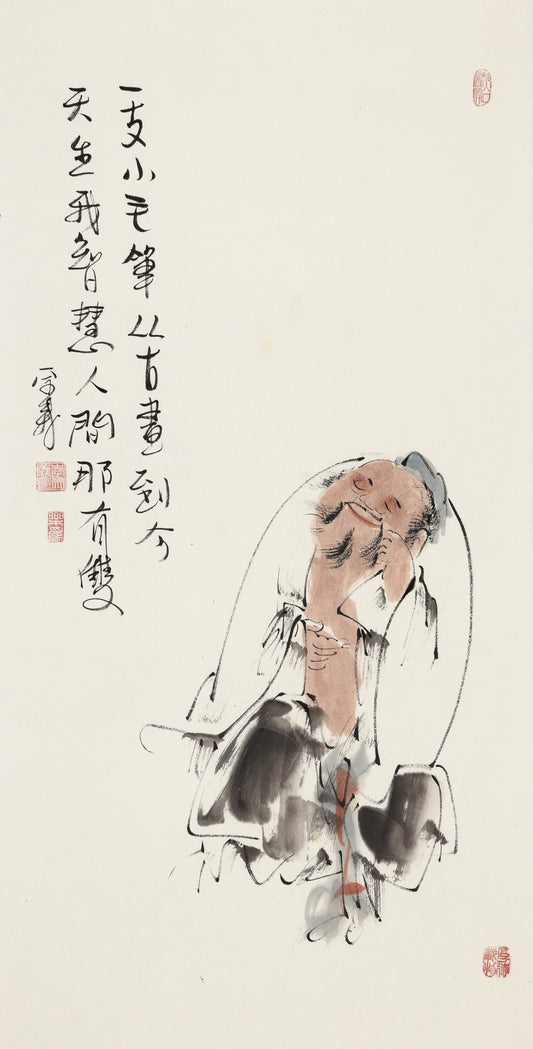 一支小毛筆从古畫到今
天生我智慧人間那有雙